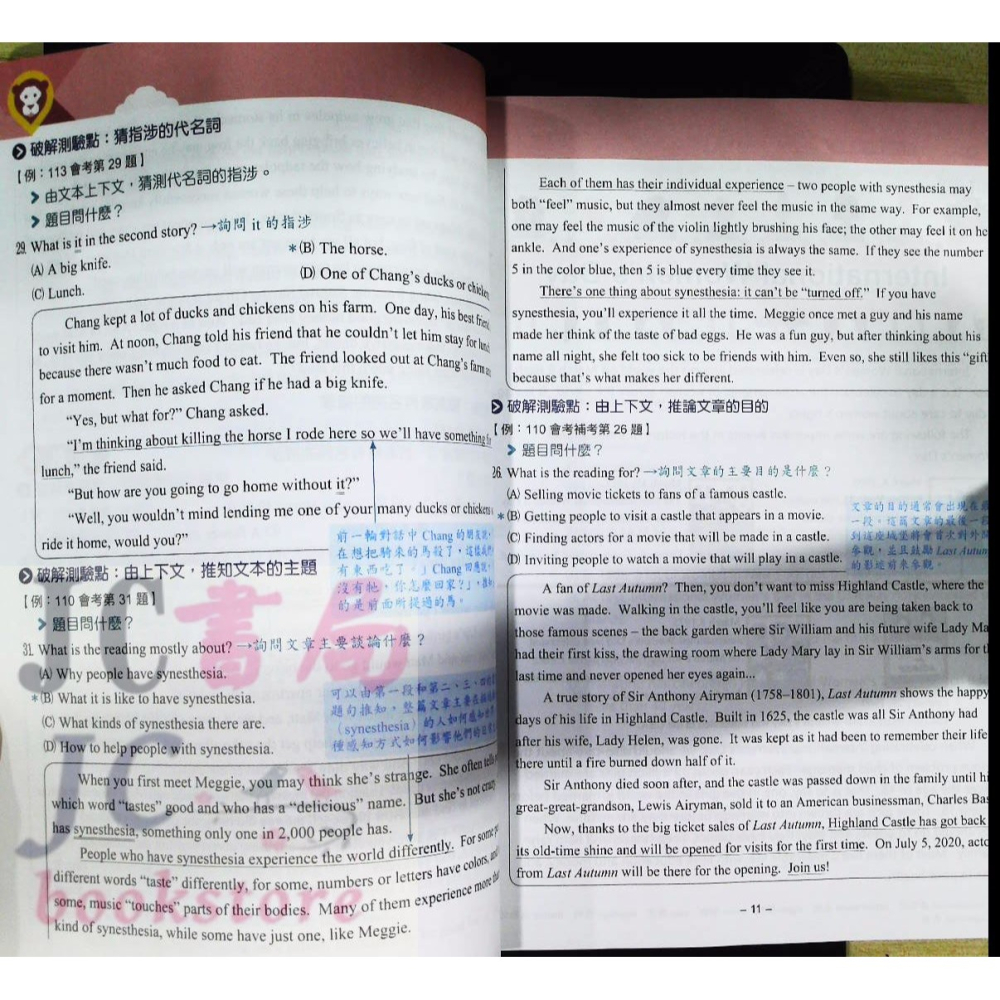 破解測驗點：猜指涉的代名詞
【例：113 會考第 29 題】
由文本上下文，猜測代名詞的指涉。
題目問什麼？
29. What is it in the second story? →詢問 it 的指涉
(A) A big knife.
*(B) The horse.
(C) Lunch.
(D) One of Chang's ducks or
Chang kept a lot of ducks and chickens on his farm. One day, his best
to visit him. At noon, Chang told his friend that he couldn't let him stay for
because there wasn't much food to eat. The friend looked out at Chang's farm
for a moment. Then he asked Chang if he had a big knife.
"Yes, but what for?" Chang asked.
"I'm thinking about killing the horse I rode here so we'll have something
lunch," the friend said.
"But how are you going to go home without it?"
"Well, you wouldn't mind lending me one of your many ducks or chickens
ride it home, would you?"
前一輪對話中 Chang 的朋友說
在想把騎來的馬殺了，這樣我們
有東西吃了。」Chang 回應說
沒有牠，你怎麼回家？」
的是前面所提過的馬。
破解測驗點：由上下文，推知文本的主題
【例：110 會考第 31 題】
題目問什麼？
31. What is the reading mostly about? →詢問文章主要談論什麼？
(A) Why people have synesthesia.
*(B) What it is like to have synesthesia.
(C) What kinds of synesthesia there are.
(D) How to help people with synesthesia.
可以由第一段和第二、三、四
題句推知，整篇文章主要在
(synesthesia) 的人如何感知
種感知方式如何影響他們的
When you first meet Meggie, you may think she's strange. She often tells
which word "tastes" good and who has a "delicious" name. But she's not crazy
has synesthesia, something only one in 2,000 people has.
People who have synesthesia experience the world differently. For some
different words "taste" differently, for some, numbers or letters have colors,
some, music "touches" parts of their bodies. Many of them experience more
kind of synesthesia, while some have just one, like Meggie.
JC書局
JC
bookstore
Each of them has their individual experience – two people with synesthesia may
both "feel" music, but they almost never feel the music in the same way. For example,
one may feel the music of the violin lightly brushing his face; the other may feel it on he
ankle. And one's experience of synesthesia is always the same. If they see the number
5 in the color blue, then 5 is blue every time they see it.
There's one thing about synesthesia: it can't be "turned off." If you have
synesthesia, you'll experience it all the time. Meggie once met a guy and his name
made her think of the taste of bad eggs. He was a fun guy, but after thinking about his
name all night, she felt too sick to be friends with him. Even so, she still likes this "gift
because that's what makes her different.
破解測驗點：由上下文，推論文章的目的
【例：110 會考補考第 26 題】
題目問什麼？
26. What is the reading for? →詢問文章的主要目的是什麼？
(A) Selling movie tickets to fans of a famous castle.
*(B) Getting people to visit a castle that appears in a movie.
(C) Finding actors for a movie that will be made in a castle.
(D) Inviting people to watch a movie that will play in a castle.
文章的目的通常會出現在
一段，這篇文章的最後一段
到這座城堡將會首次對外開
參觀，並且鼓勵 Last Autumn
的影迷前來參觀。
A fan of Last Autumn? Then, you don't want to miss Highland Castle, where the
movie was made. Walking in the castle, you'll feel like you are being taken back to
those famous scenes – the back garden where Sir William and his future wife Lady Ma
had their first kiss, the drawing room where Lady Mary lay in Sir William's arms for t
last time and never opened her eyes again...
A true story of Sir Anthony Airyman (1758–1801), Last Autumn shows the happy
days of his life in Highland Castle. Built in 1625, the castle was all Sir Anthony had
after his wife, Lady Helen, was gone. It was kept as it had been to remember their life
there until a fire burned down half of it.
Sir Anthony died soon after, and the castle was passed down in the family until hi
great-great-grandson, Lewis Airyman, sold it to an American businessman, Charles Ba
Now, thanks to the big ticket sales of Last Autumn, Highland Castle has got back
its old-time shine and will be opened for visits for the first time. On July 5, 2020, acto
from Last Autumn will be there for the opening. Join us!
– 11 –